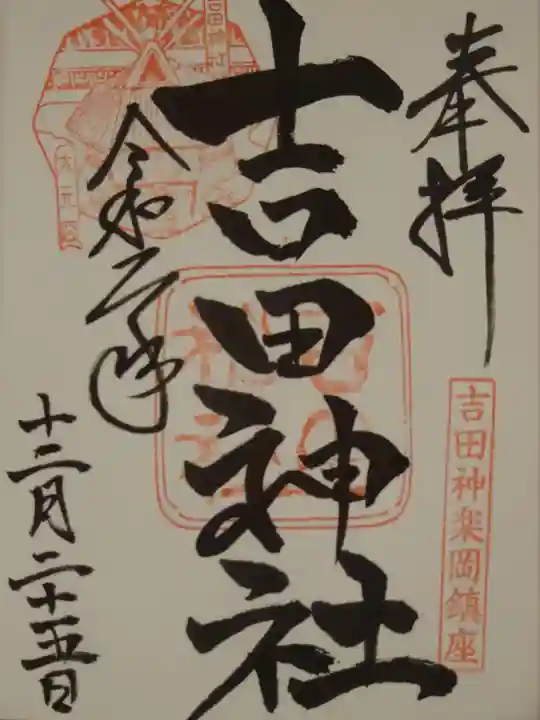 奉拝
吉田神楽岡鎮座
吉田神社
吉田神社
令和二年
十二月二十五日